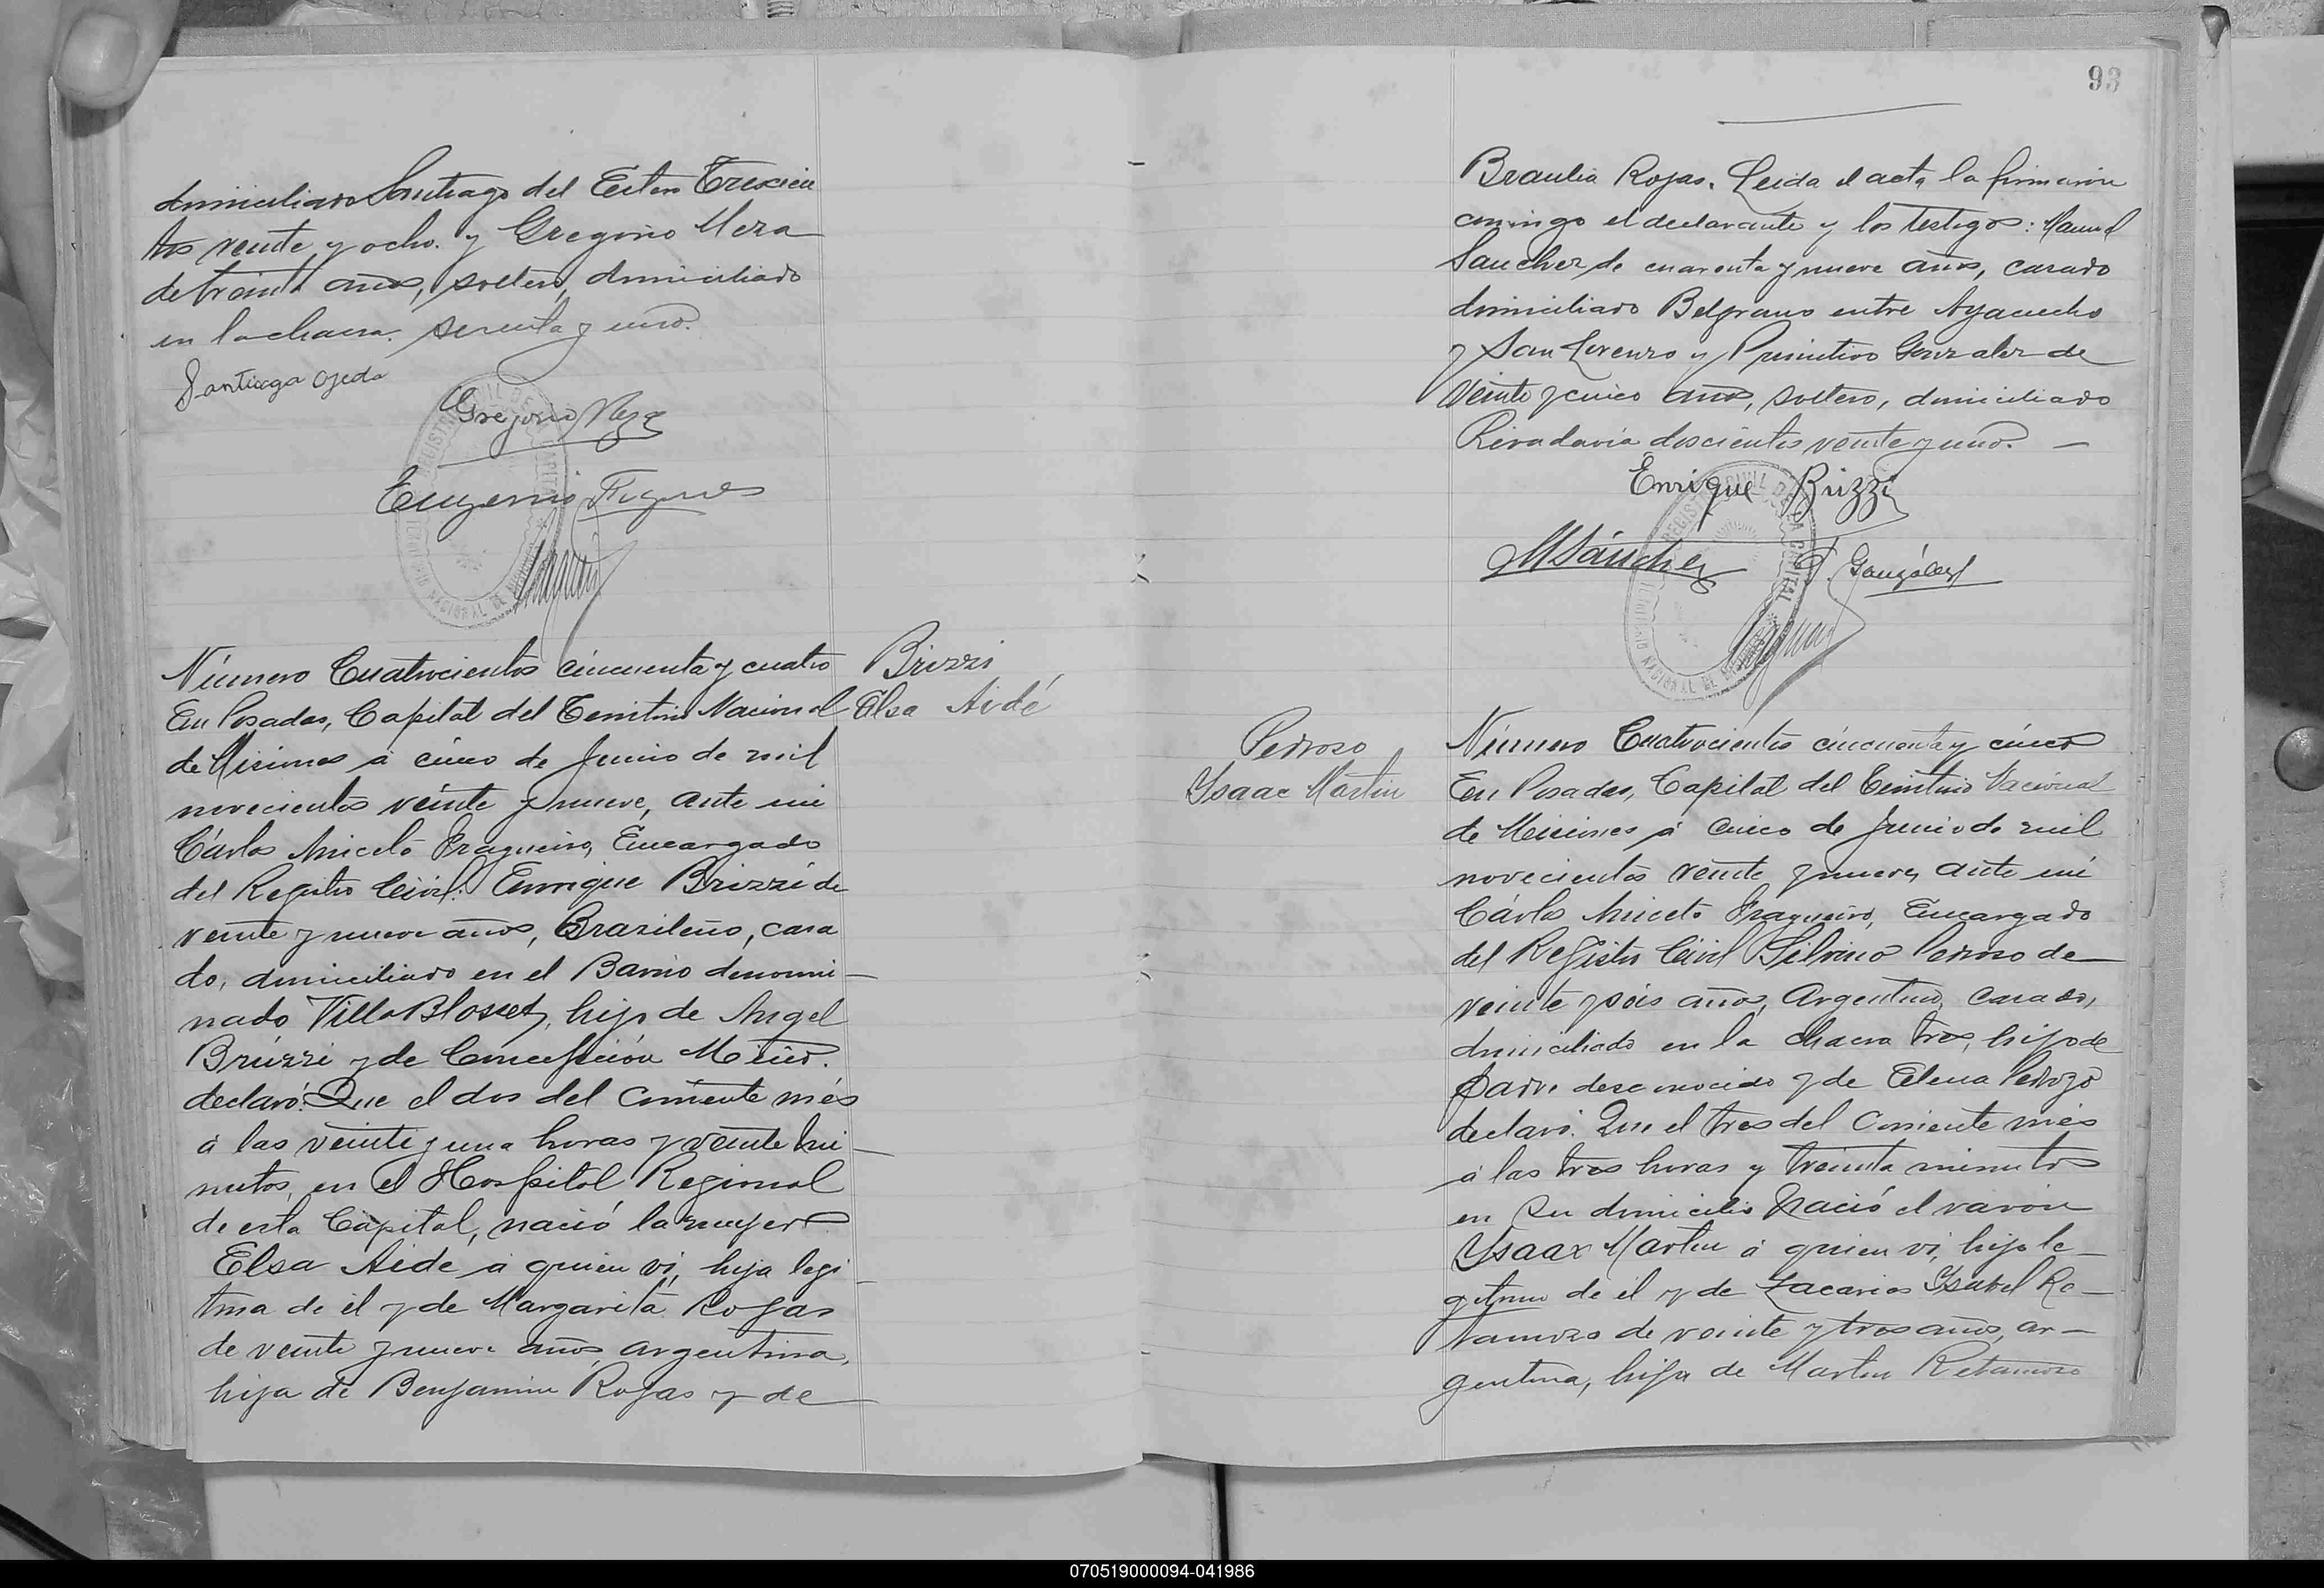 domiciliado Santiago del Estero Trescien
tos veinte y ocho. y Gregorio Meza
de treinta años, soltero, domiciliado
en la chacra sesenta y uno.
Santiago Ojeda
Gregorio Meza
Eugenio
Número Cuatrocientos cincuenta y cuatro
En Posadas, Capital del Territorio Nacional
de Misiones á cinco de Junio de mil
novecientos veinte y nueve, ante mi
Cárlos Aniceto Fragueiro, Encargado
del Registro Civil: Enrique Brizzi de
veinte y nueve años, Brazileño, casa
do, domiciliado en el Barrio denomi-
nado Villa Blosset, hijo de Angel
Brizzi y de Concepción
declaró: Que el dos del corriente més
á las veinte y una horas y veinte mi-
nutos, en el Hospital Regional
de esta Capital, nació la mujer
Elsa Aide á quien vi, hija legi-
tima de él y de Margarita Rojas
de veinte y nueve años, argentina,
hija de Benjamin Rojas y de
Brizzi
Elsa Aidé
93
Braulia Rojas. Leida el acta la firmaron
conmigo el declarante y los testigos: Manuel
Sanchez de cuarenta y nueve años, casado
domiciliado Belgrano entre Ayacucho
y San Lorenzo y Primitivo Gonzalez de
veinte y cinco años, soltero, domiciliado
Rivadavia doscientos veinte y uno. —
Enrique Brizzi
M Sánchez
P. González
Pedroso
Ysaac Martin
Número Cuatrocientos cincuenta y cinco
En Posadas, Capital del Territorio Nacional
de Misiones á cinco de Junio de mil
novecientos veinte y nueve, ante mi
Cárlos Aniceto Fragueiro, Encargado
del Registro Civil Silvino Pedroso de
veinte y seis años, Argentino, casado,
domiciliado en la chacra tres, hijo de
padre desconocido y de Elena Pedrozo
declaró. Que el tres del corriente més
á las tres horas y treinta minutos
en su domicilio nació el varón
Ysaac Martin á quien vi, hijo le-
gitimo de él y de Zacarias Ysabel Re-
tamozo de veinte y tres años, ar-
gentina, hija de Martin Retamozo
070519000094-041986